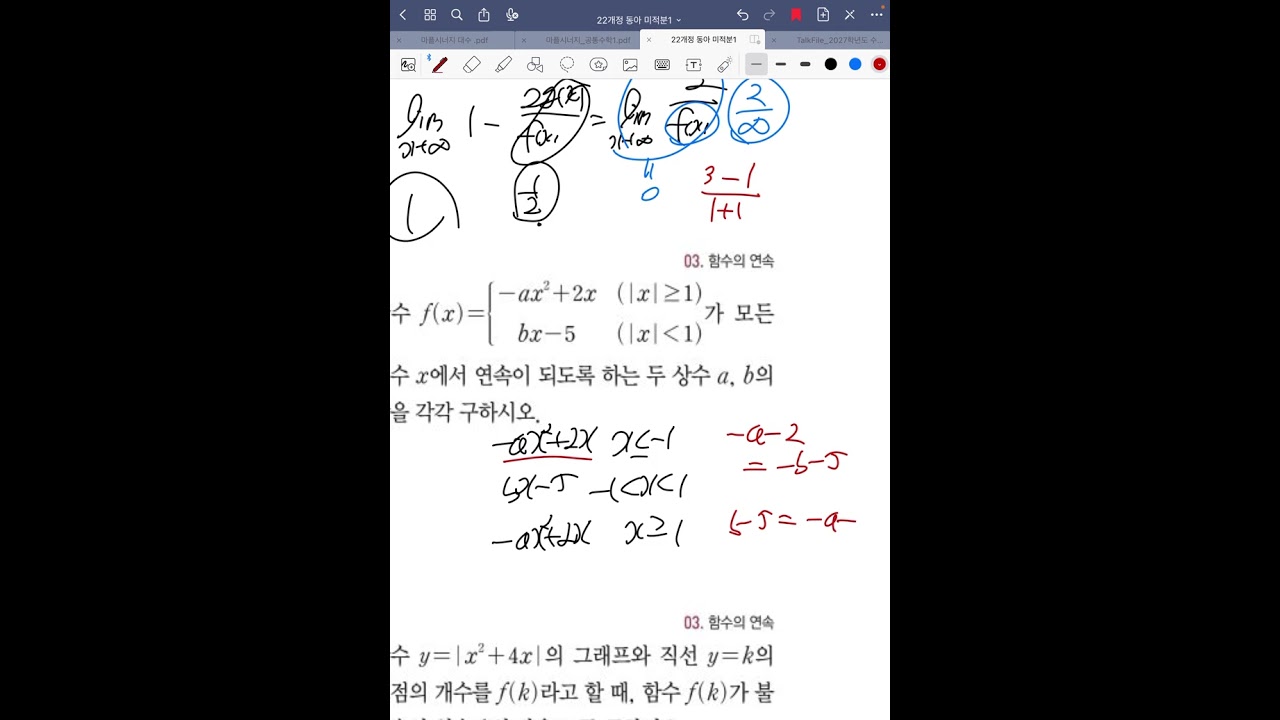 22개정 동아 미적분1
마플시너지 대수 .pdf
마플시너지_공통수학1.pdf
22개정 동아 미적분1
TalkFile_2027학년도 수...
lim x→∞ 1 - = lim x→∞ 2/f(x) 2/∞
1 1/2 0 3-1/1+1
03. 함수의 연속
수 f(x)={ -ax²+2x (|x|≥1)
bx-5 (|x|<1) 가 모든
수 x에서 연속이 되도록 하는 두 상수 a, b의
을 각각 구하시오.
-ax²+2x x≤-1 -a-2
= -b-5
bx-5 -1<x<1
-ax²+2x x≥1 b-5=-a-
03. 함수의 연속
수 y=|x²+4x|의 그래프와 직선 y=k의
점의 개수를 f(k)라고 할 때, 함수 f(k)가 불